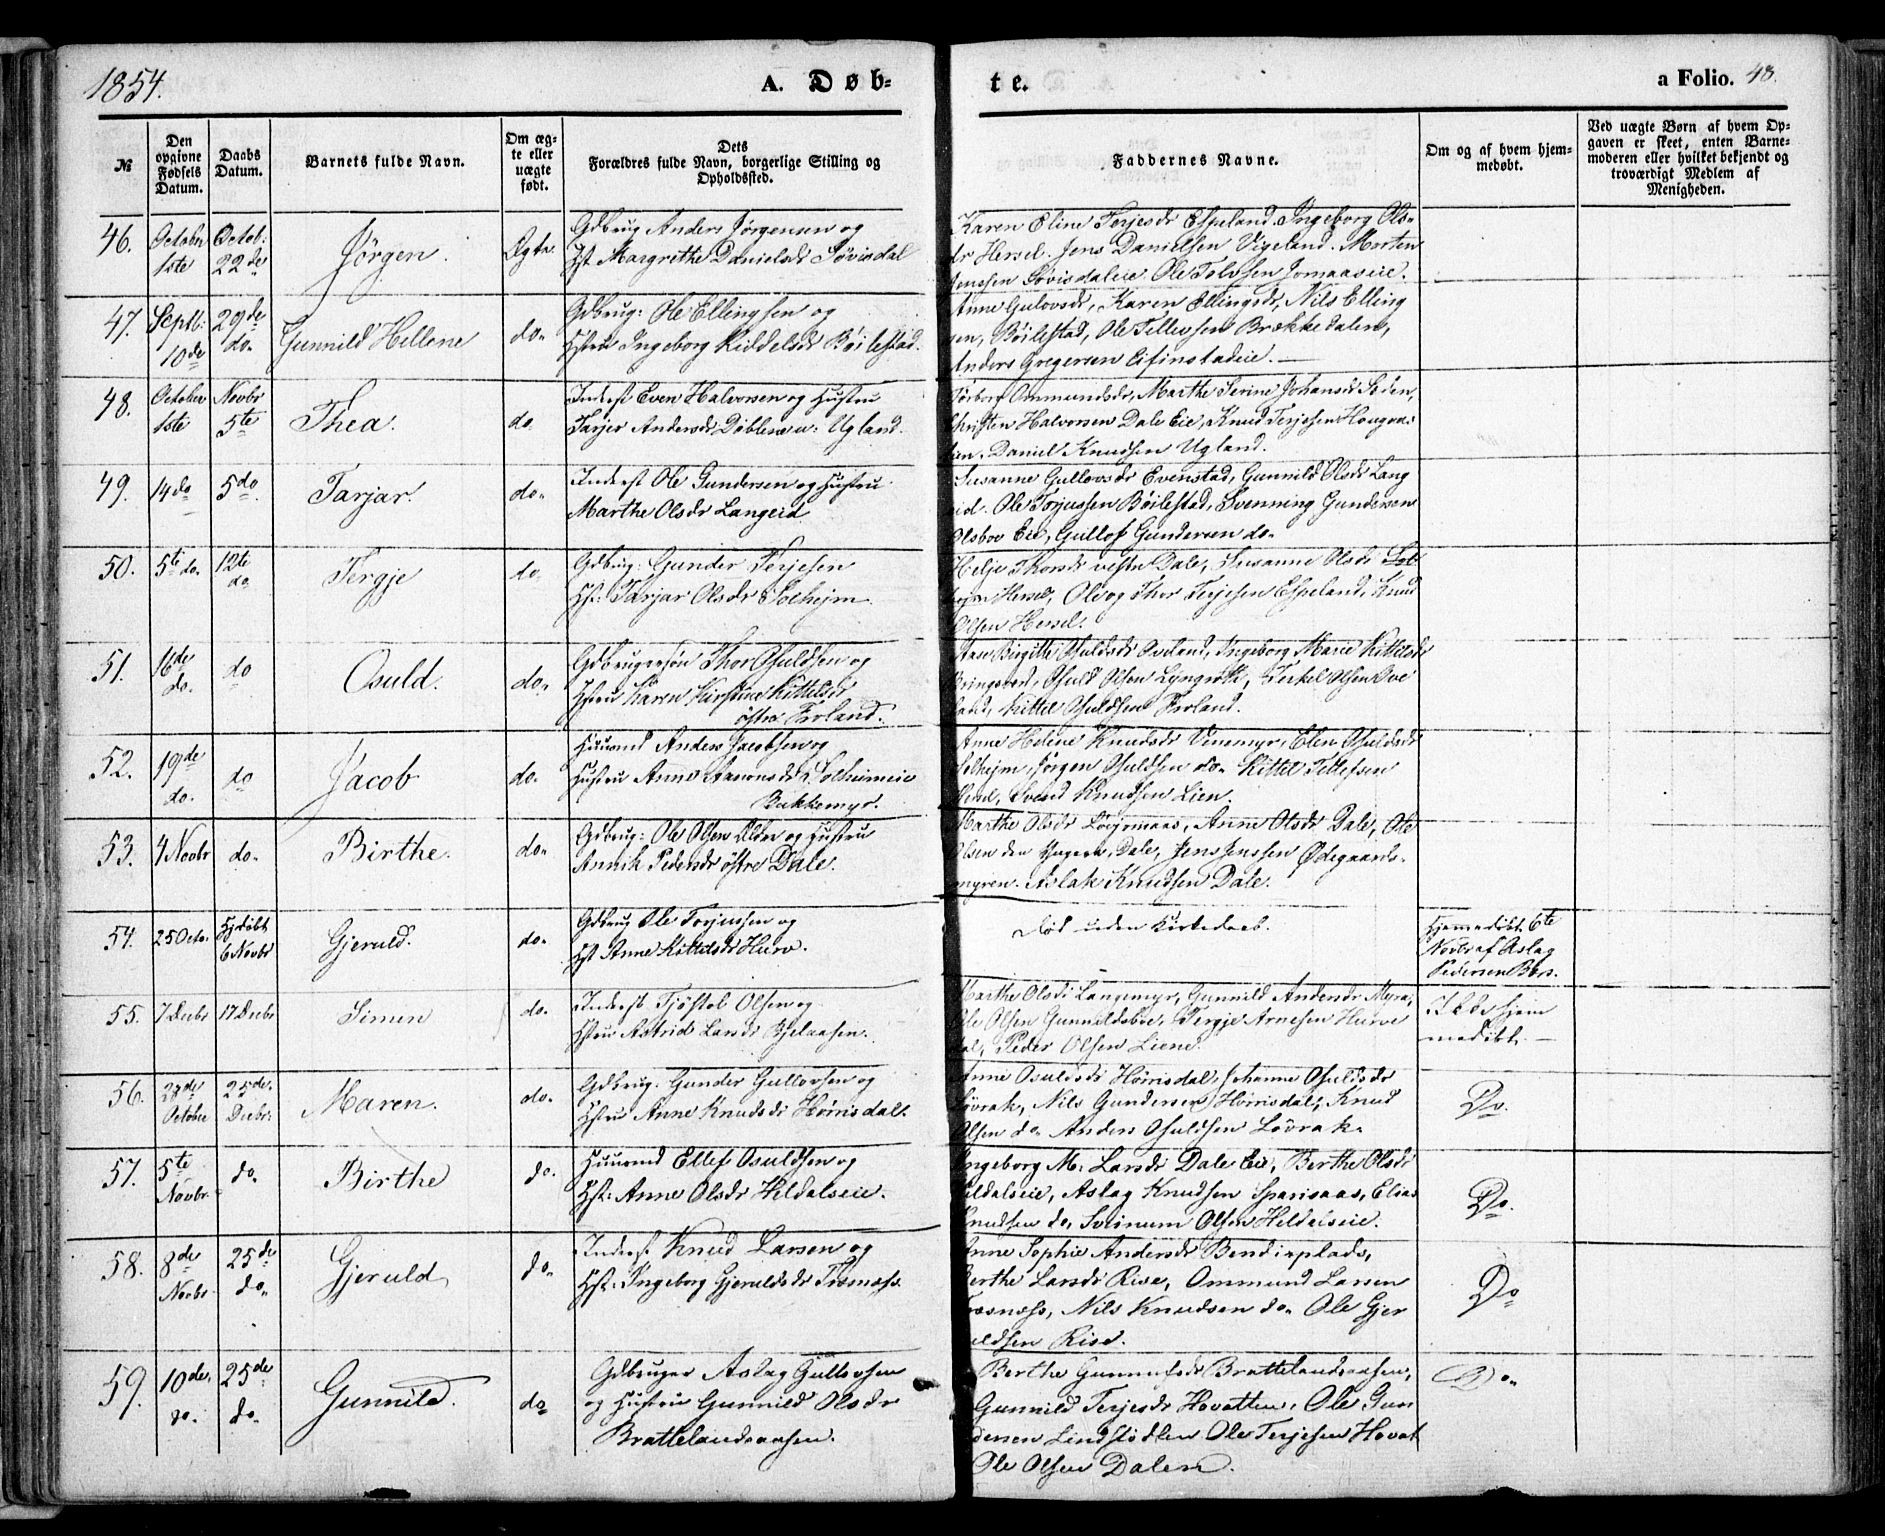 1854.
A. Døb-
te.
a Folio. 48.
№
Den opgivne Fødsels Datum.
Daabs Datum.
Barnets fulde Navn.
Om æg-te eller uægte født.
Dets Forældres fulde Navn, borgerlige Stilling og Opholdssted.
Faddernes Navne.
Om og af hvem hjem-medøbt.
Ved uægte Børn af hvem Op-gaven er skeet, enten Barne-moderen eller hvilket bekjendt og troværdigt Medlem af Menigheden.
46. Octobr 1ste
Octob: 22de
Jørgen.
Ægte.
Gdbrug Anders Jørgensen og
Hst Margrethe Danielsdr Søvisdal
Karen Eline Terjesdr Espeland. Ingeborg Ols-
dr Hersel. Jens Danielsen Vigeland. Morten
Jenssen Søvisdaleie. Ole Tolvsen Jomaaseie.
47. Septb: 10de
29de do.
Gunnild Hellene
do.
Gdbrug: Ole Ellingsen og
Hstru Ingeborg Kiddelsdr Bøilestad.
Anne Gulovsdr, Karen Ellingsdr, Nils Elling
sen, Bøilestad, Ole Tellevsen Brækkedalen,
Anders Gregersen Eifinstadeie.
48. October 1ste
Novbr 5te
Thea.
do.
Inderst Even Halvorsen og Hustru
Tarjer Andersdr Døblene u: Ugland.
Torborg Ommundsdr, Marthe Serine Johansdr Seden,
Christen Halvorsen Dale Eie, Knud Terjesen Hougaas
Daniel Knudsen Ugland.
49. 14 do
5 do
Tarjar.
do.
Inderst Ole Gundersen og Hustru
Marthe Olsdr Langeid
Susanne Gullovsdr Evenstad, Gunnild Olsdr Lang
eid. Ole Torjussen Bøilestad, Svenning Gundersen
Olsboe Eie, Gullof Gundersen do.
50. 5te do.
12te do
Tergje
do.
Gdbrug: Gunder Terjesen
Hst: Tarjar Olsdr Solhejm.
Helje Thorsdr vestre Dale, Susanne Olsdr Sol
hejm Hersel, Ole og Thor Terjesen Espeland, Knud
Olsen Hersel.
51. 16de do.
do
Osuld.
do.
Gdbrugersøn Thor Osuldsen og
Hstru Karen Kirstine Kittelsdr
østre Froland.
Aase Birgitte Osuldsdr Oveland, Ingeborg Marie Kittelsdr
Bringsvor, Osuld Olsen Lyngroth, Terkel Olsen Ove
land, Kittel Osuldsen Froland.
52. 19de do.
do
Jacob
do.
Huusmd Anders Jacobsen og
Hustru Anne Aanonsdr Solheimeie
Bakkemyr.
Anne Helene Knudsdr Vinmyr, Elen Osuldsdr
Solhejm, Jørgen Osuldsen do. Kittel Tellefsen
Svend Knudsen Lien.
53. 4 Novbr
do.
Birthe.
do.
Gdbrug: Ole Olsen Ælder og Hustru
Annik Pedersdr østre Dale.
Marthe Olsdr Løvjomaas, Anne Olsdr Dale, Ole
Olsen den Yngere, Dale, Jens Jenssen Ødegaards-
myren. Aslak Knudsen Dale.
54. 25 Octo.
Hjdøbt 6 Novbr
Gjeruld.
do.
Gdbrug Ole Torjussen og
Hst Anne Kittelsdr Hurv.
Død uden Kirkedaab.
Hjemmedøbt 6te
Novbr af Aslag
Pedersen Bers.
55. 7 Decbr
17 Decbr
Simen
do.
Inderst Tjøstol Olsen og
Hstru Astrid Larsdr Bjelaasen.
Marthe Olsdr Langemyr, Gunnild Andersdr Myra,
Ole Olsen Gunnildsboe, Tergje Arnesen Hurve
dal, Peder Olsen Liene.
Ikke hjem
medøbt.
56. 28de October
25de Decbr.
Maren.
do.
Gdbrug. Gunder Gullovsen og
Hstru Anne Knudsdr Hørrisdal.
Anne Osuldsdr Hørrisdal, Johanne Osuldsdr
Løvrak, Nils Gundersen Hørrisdal, Knud
Olsen do. Anders Osuldsen Løvrak.
Do.
57. 5te Novbr.
do.
Birthe
do.
Huusmd Ellef Osuldsen og
Hst: Anne Olsdr Heldalseie.
Ingeborg M. Larsdr Dale Eie, Berthe Olsdr
Heldalseie, Aslag Knudsen Sparsaas, Elias
Knudsen do, Sveinum Olsen Heldalseie.
Do.
58. 8de Novbr
25de do.
Gjeruld
do.
Inderst Knud Larsen og
Hst: Ingeborg Gjeruldsdr Trosnæss
Anne Sophie Andersdr Bendixplads,
Berthe Larsdr Rise, Ommund Larsen
Trosnæss, Nils Knudsen do. Ole Gjer
uldsen Rise.
Do
59. 10de do.
25de do.
Gunnild.
do
Gdbruger Aslag Gullovsen
og Hustru Gunnild Olsdr
Brattelandsaasen.
Berthe Gunnufsdr Brattelandsaasen,
Gunnild Terjesdr Hovatten, Ole Gun
dersen Lindstødlen Ole Terjesen Hovat
Ole Olsen Dalen.
Do.